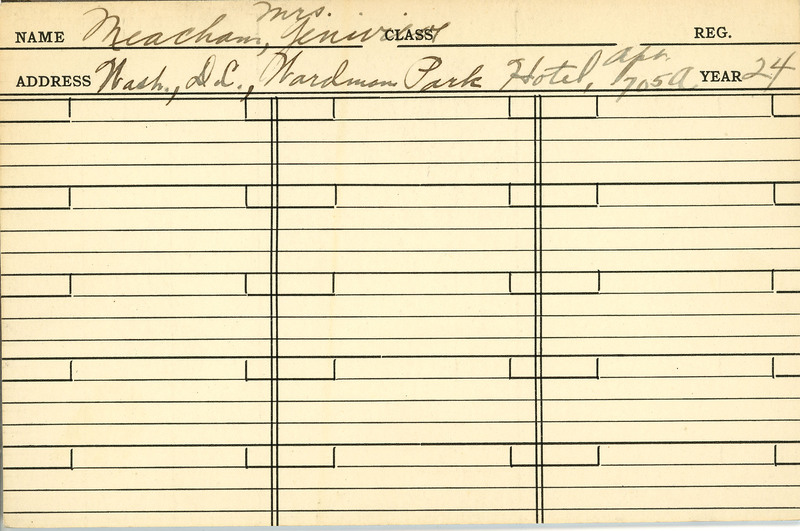 NAME Meacham, Mrs. Genivieve CLASS REG.
ADDRESS Wash., D.C., Wardman Park Hotel, Apr. 705A YEAR 24